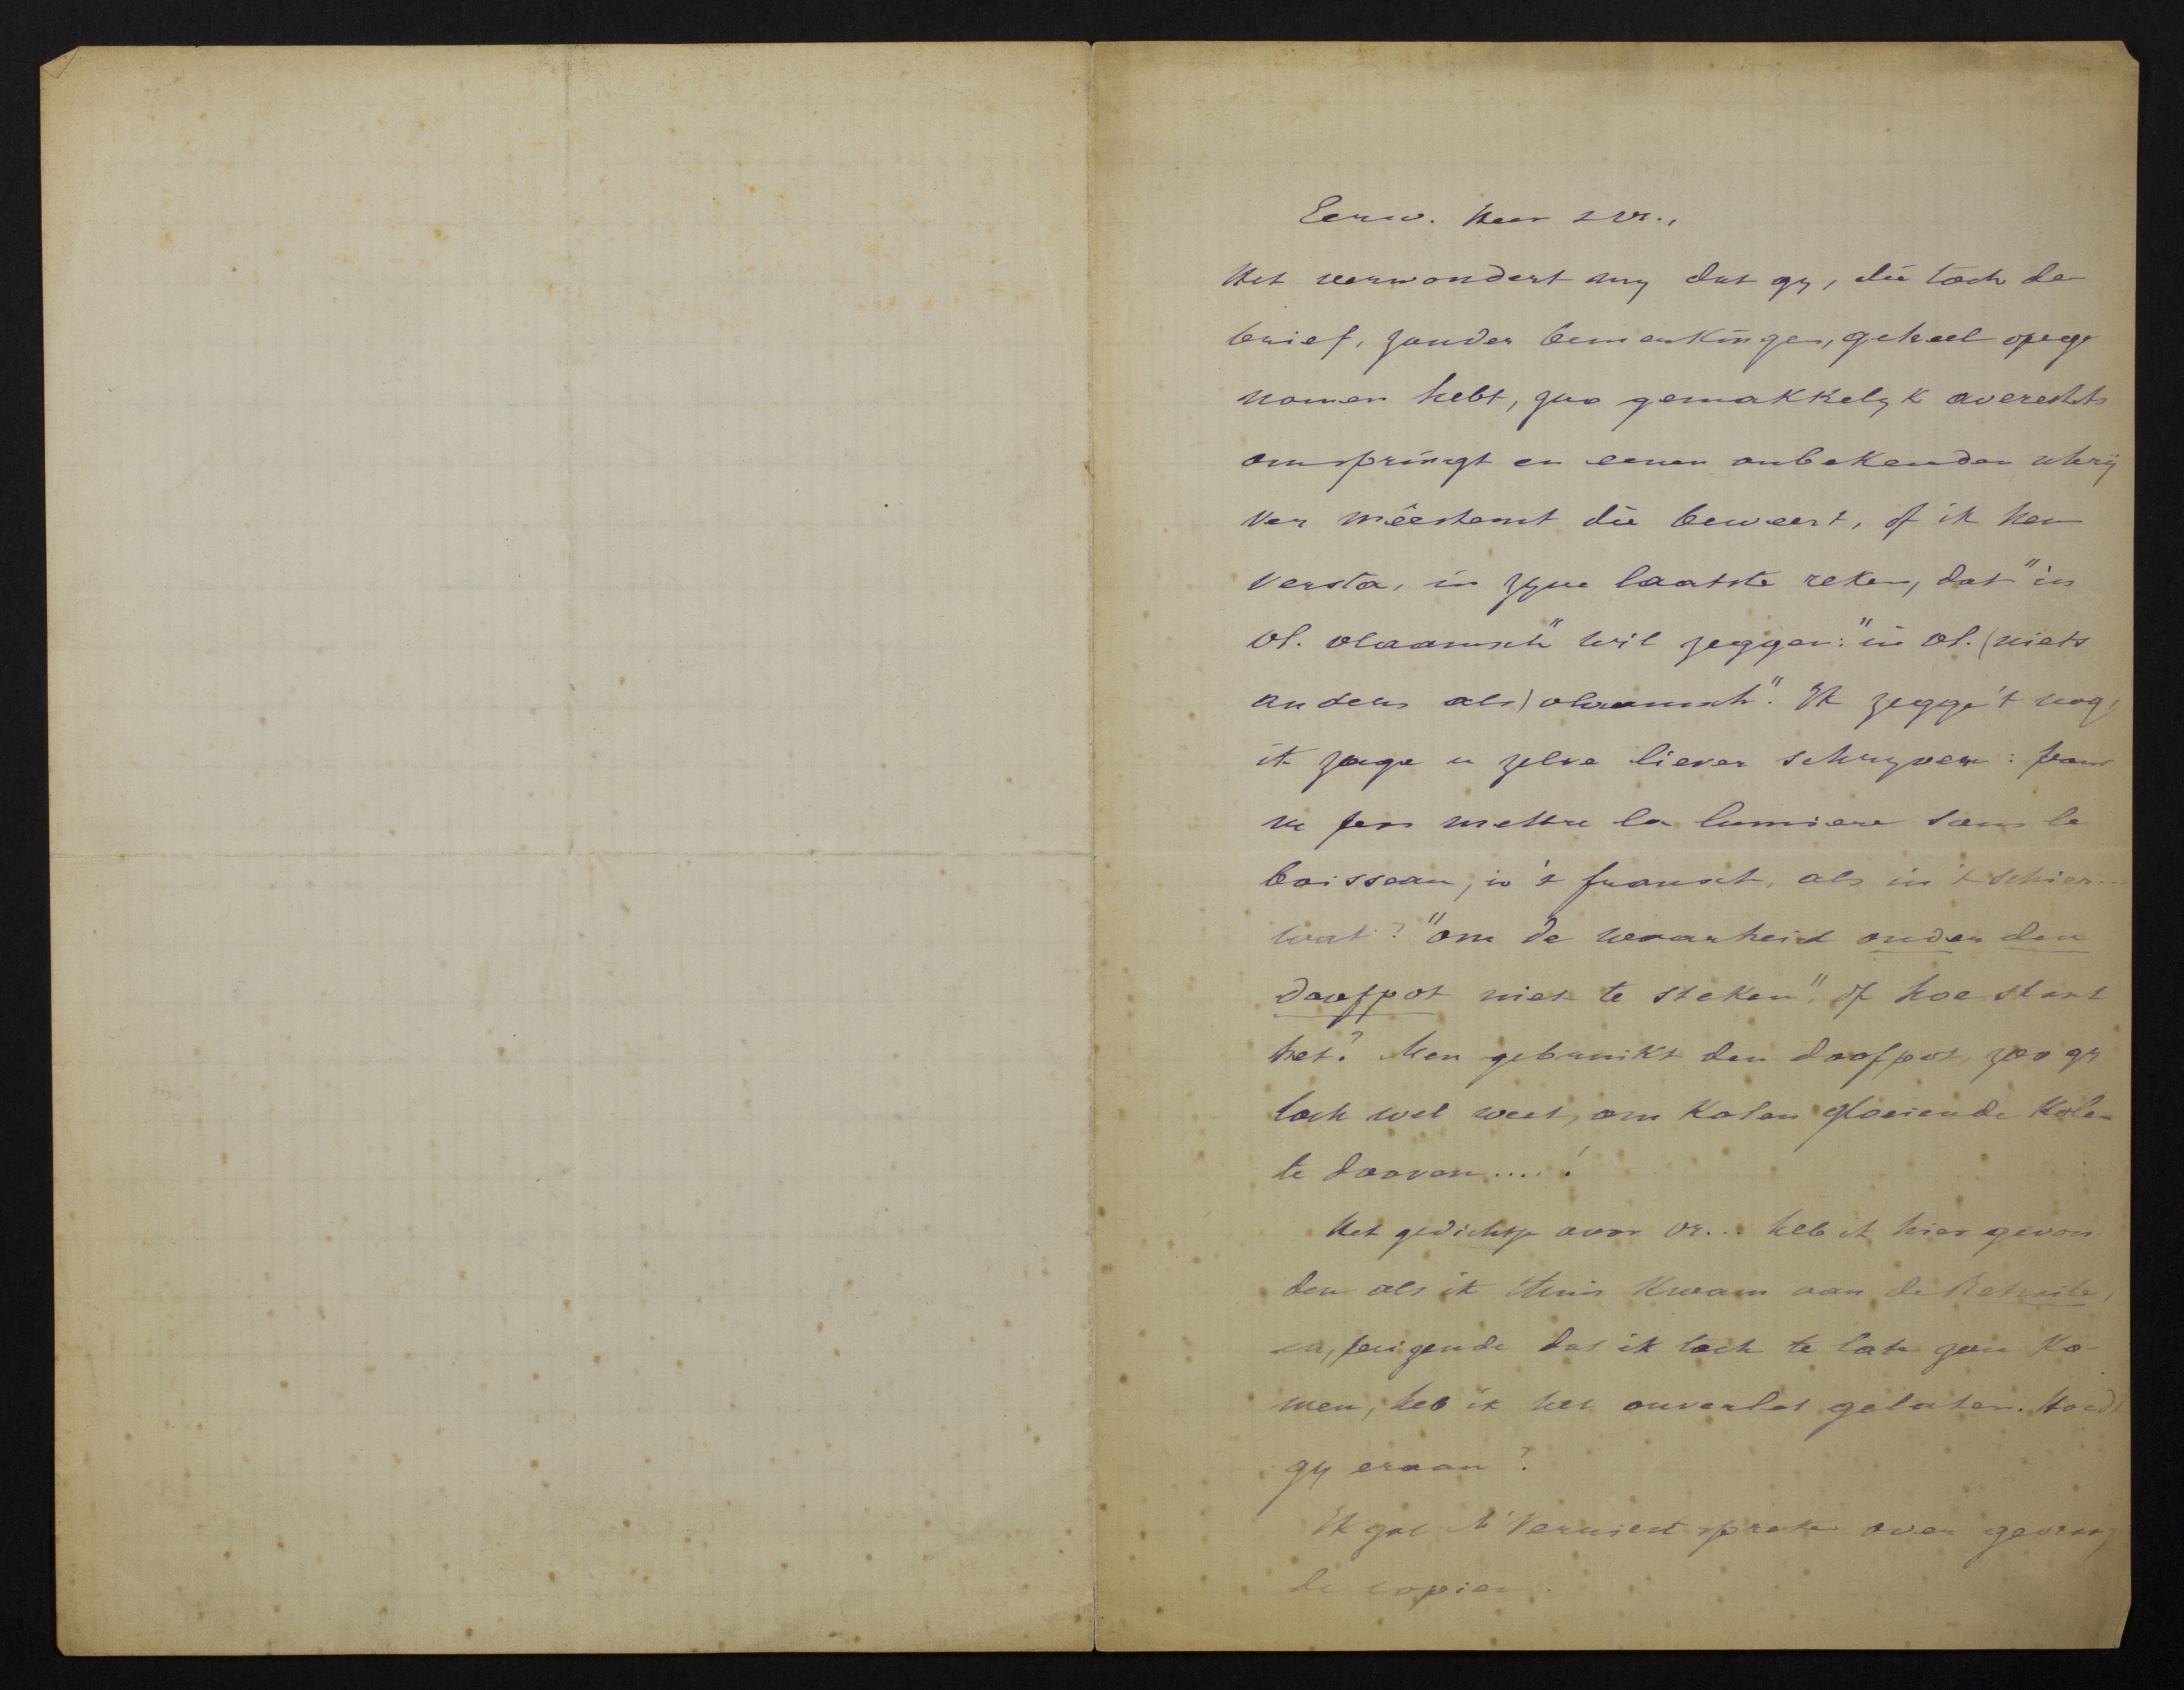 Eerw. Heer & Vr.,
Het verwondert my dat gy, die toch de
brief, zonder bemerkingen, geheel opge
nomen hebt, zoo gemakkelyk averechts
omspringt en eenen onbekenden schrij
ver mêestemt die beweert, of ik hem
versta, in zyne laatste reken, dat "in
Vl. vlaamsch" wil zeggen: "in Vl. (niets
anders als) vlaamsch". Ik zegge 't nog,
ik zage u zelve liever schryven: pour
ne pas mettre la lumiere sous le
boisseau, in 't fransch, als in 't schier...
wat? "om de waarheid onder den
doofpot niet te steken", of hoe staat
het? Men gebruikt den doofpot, zoo gy
toch wel weet, om kolen gloeiende kolen
te dooven....!
Het gedichtje voor Vr... heb ik hier gevon
den als ik thuis kwam van de Retraite,
en, peizende dat ik toch te late gou ko-
men, heb ik het onverlet gelaten. Houdt
gy eraan?
Ik gaf Mr Verriest spreke over gevraag
de copien.